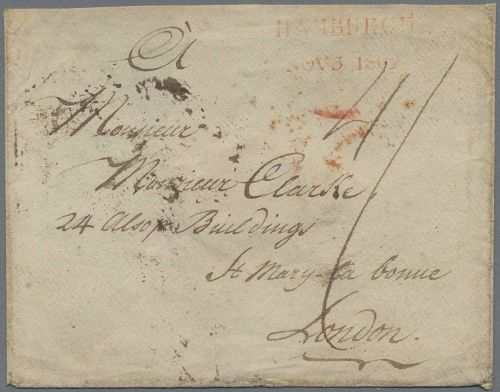 HAMBURGH
NOV 3 180
A
Monsieur
Monsieur Clarke
24 Alsop Buildings
St Mary-la bonne
London.